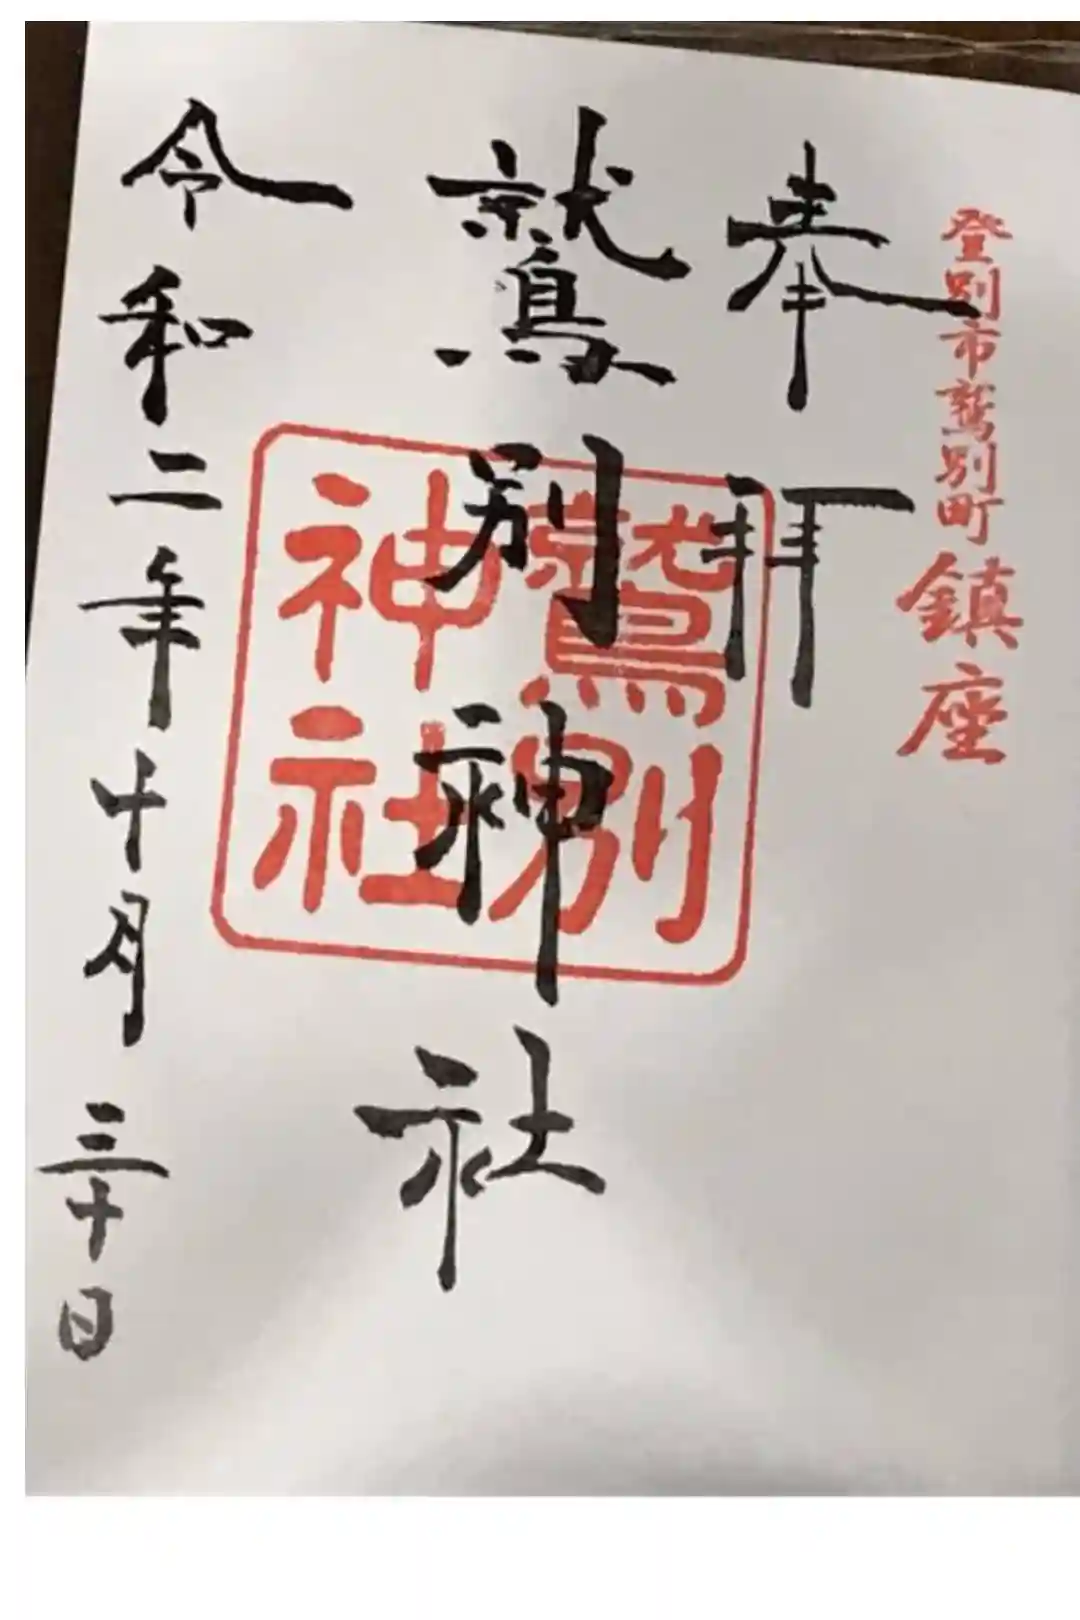 登別市鷲別町鎮座
奉拝
鷲別神社
鷲別
神社
令和二年十月三十日